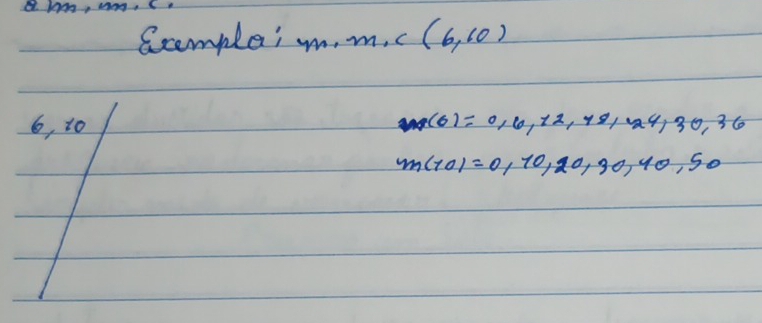 a m.m.c.
Exemplo: m.m.c (6,10)
6, 10
m(6)= 0, 6, 12, 18, 24, 30, 36
m(10)=0, 10, 20, 30, 40, 50